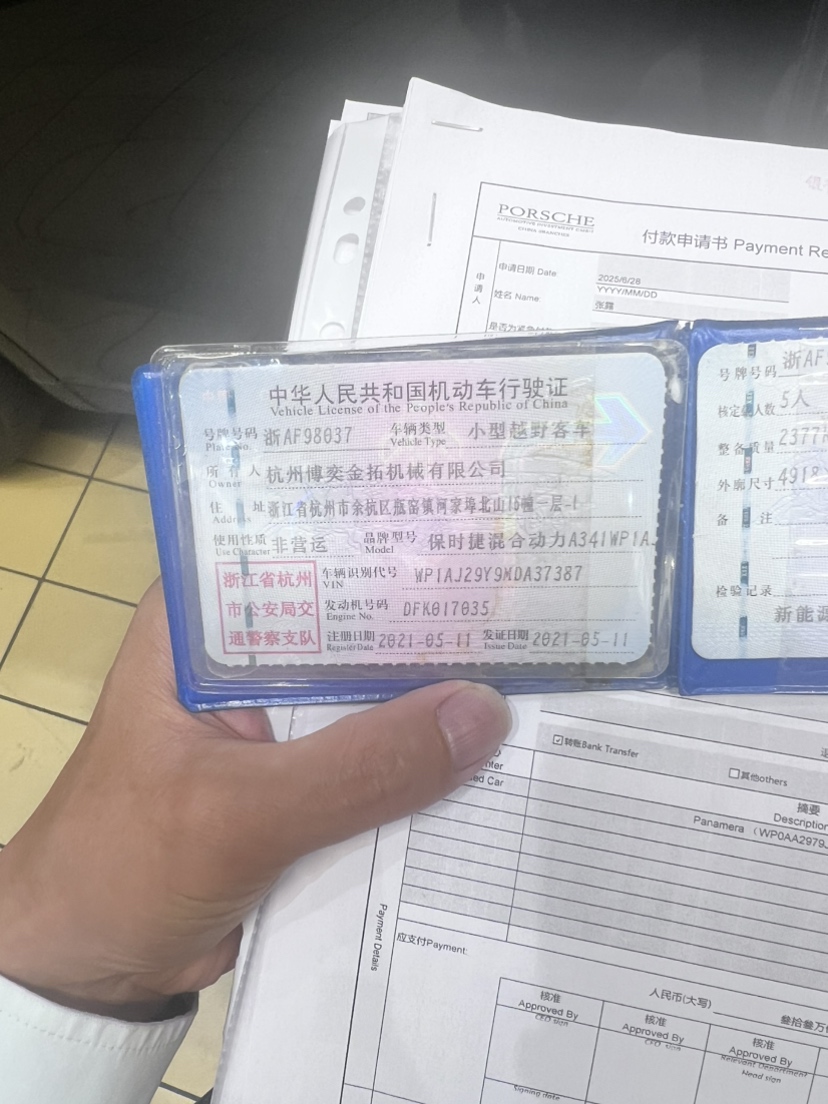 PORSCHE
付款申请书 Payment Re
申请人
申请日期 Date
2025/6/26
YYYY/MM/DD
姓名 Name:
张露
中华人民共和国机动车行驶证
Vehicle License of the People's Republic of China
号牌号码 浙AF98037 车辆类型 小型越野客车
Plate No. Vehicle Type
所有人 杭州博奕金拓机械有限公司
Owner
住址 浙江省杭州市余杭区瓶窑镇河家埠北山16幢一层-1
Address
使用性质 非营运 品牌型号 保时捷混合动力A341WP1AJ
Use Character Model
浙江省杭州
市公安局交
通警察支队
车辆识别代号 WP1AJ29Y9MDA37387
VIN
发动机号码 DFK017035
Engine No.
注册日期 2021-05-11 发证日期 2021-05-11
Register Date Issue Date
号牌号码 浙AF
核定载人数 5人
整备质量 2377
外廓尺寸 4918
备注
检验记录
新能源
转账Bank Transfer
其他others
ed Car
摘要
Description
Panamera （WP0AA2979
Payment Details
应支付Payment:
人民币(大写)
叁拾叁万
核准 核准 核准
Approved By Approved By Approved By
CEO sign CFO sign Relevant Department
Head sign
Signing date